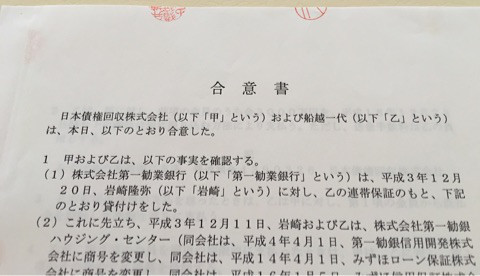 合意書
日本債権回収株式会社（以下「甲」という）および船越一代（以下「乙」という）
は、本日、以下のとおり合意した。
1 甲および乙は、以下の事実を確認する。
（1）株式会社第一勧業銀行（以下「第一勧業銀行」という）は、平成３年１２月
２０日、岩崎隆弥（以下「岩崎」という）に対し、乙の連帯保証のもと、下記
のとおり貸付けをした。
（2）これに先立ち、平成３年１２月１１日、岩崎および乙は、株式会社第一勧銀
ハウジング・センター（同会社は、平成４年４月１日、第一勧銀信用開発株式
会社に商号を変更し、同会社は、平成１４年４月１日、みずほローン保証株式
会社に商号を変更し、同会社は、平成１６年１月５日、みずほ信用保証株式会